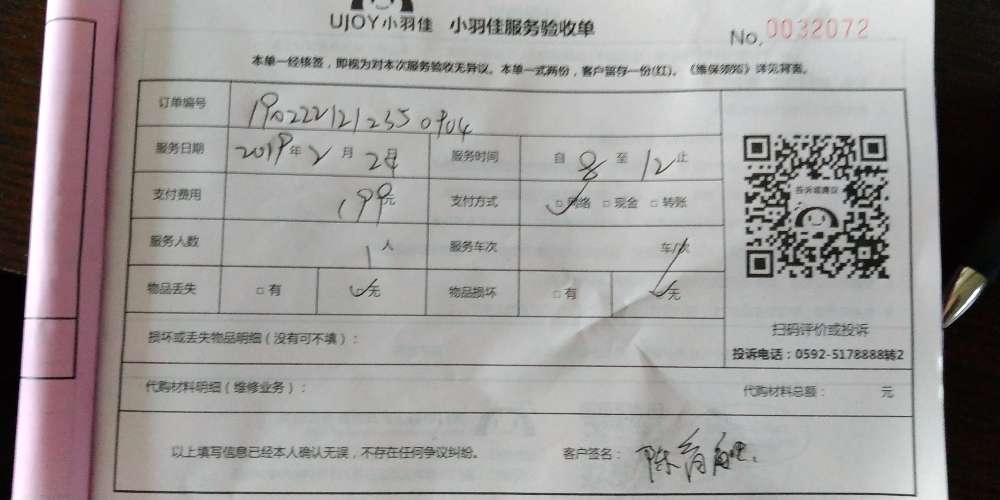 UJOY小羽佳 小羽佳服务验收单
No. 0032072
本单一经核签，即视为对本次服务验收无异议。本单一式两份，客户留存一份(红)。《维保须知》详见背面。
订单编号 190222121235 0904
服务日期 2019年2月24日 服务时间 自8至12止
支付费用 199元 支付方式 □网络 □现金 □转账
服务人数 1人 服务车次 车/次
物品丢失 □有 □无 物品损坏 □有 □无
投诉或建议
扫码评价或投诉
投诉电话：0592-5178888转2
损坏或丢失物品明细（没有可不填）：
代购材料明细（维修业务）： 代购材料总额： 元
以上填写信息已经本人确认无误，不存在任何争议纠纷。 客户签名：陈